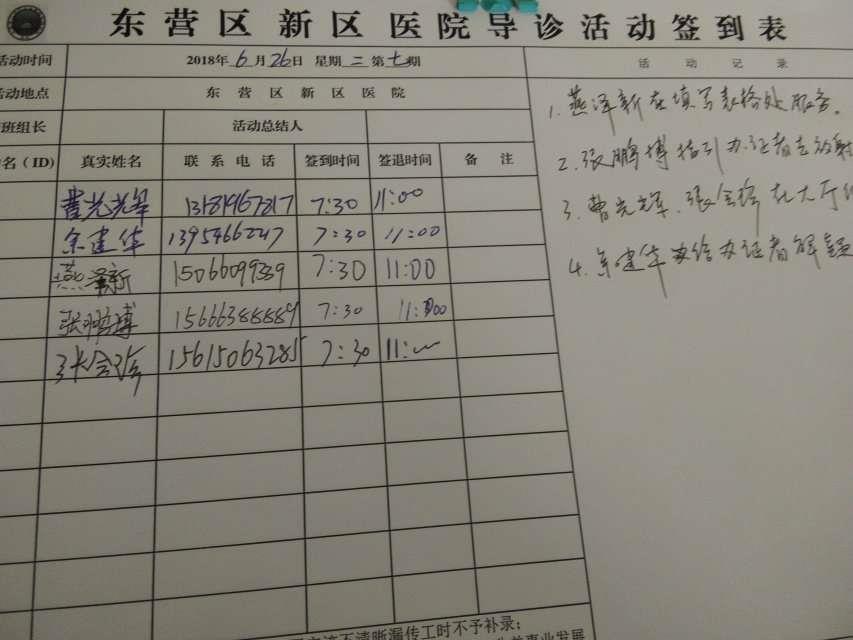 东营区新区医院导诊活动签到表
活动时间 2018年6月26日 星期二 第七期 活动记录
活动地点 东营区新区医院
班组长 活动总结人
名（ID) 真实姓名 联系电话 签到时间 签退时间 备注
曹光辉 13181967817 7:30 11:00
余建华 13954662247 7:30 11:00
燕泽新 15066099339 7:30 11:00
张鹏博 15666388889 7:30 11:00
张会珍 15615063285 7:30 11:
1. 燕泽新在填写表格处服务。
2. 张鹏博指引办证者去放射
3. 曹光辉、张会珍在大厅
4. 余建华 给办证者解疑
不清晰漏传工时不予补录；
事业发展